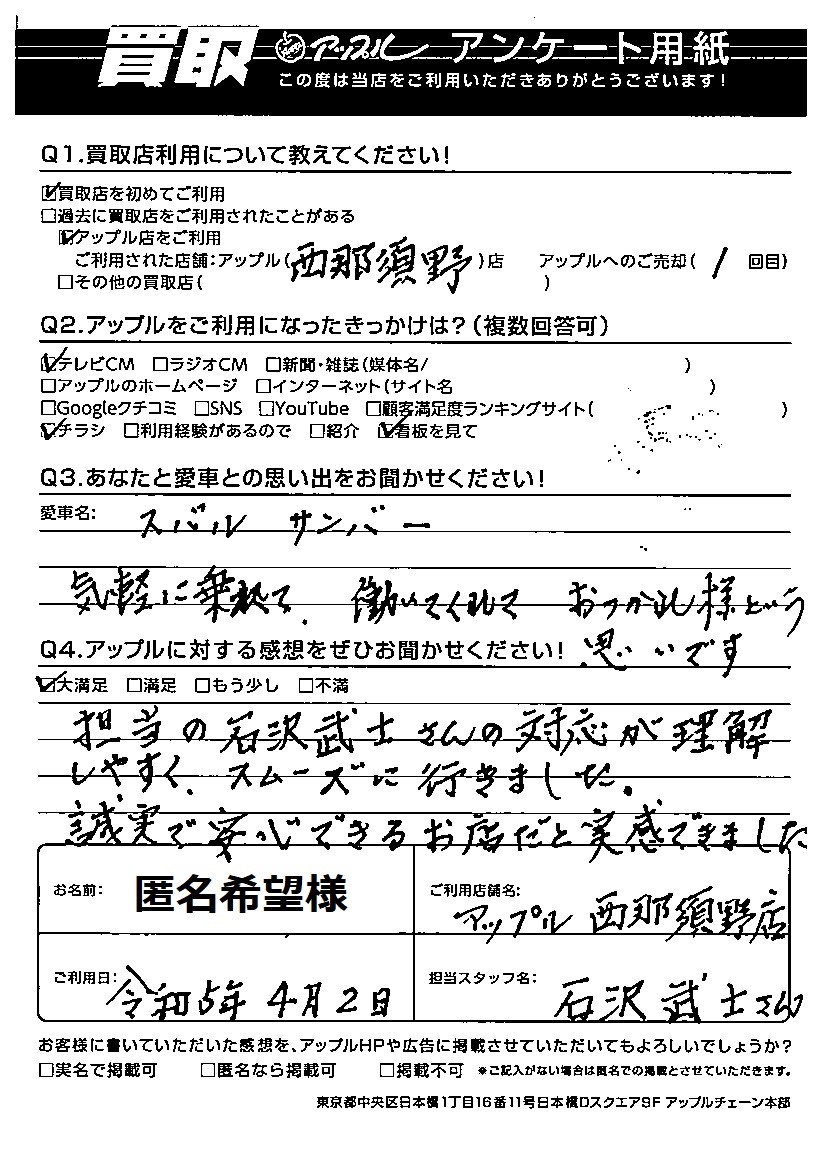 買取 アップル アンケート用紙
この度は当店をご利用いただきありがとうございます!
Q1.買取店利用について教えてください!
☑買取店を初めてご利用
□過去に買取店をご利用されたことがある
☑アップル店をご利用
ご利用された店舗:アップル(西那須野)店 アップルへのご売却(1回目)
□その他の買取店( )
Q2.アップルをご利用になったきっかけは?(複数回答可)
☑テレビCM □ラジオCM □新聞・雑誌(媒体名/ )
□アップルのホームページ □インターネット(サイト名 )
□Googleクチコミ □SNS □YouTube □顧客満足度ランキングサイト( )
☑チラシ □利用経験があるので □紹介 ☑看板を見て
Q3.あなたと愛車との思い出をお聞かせください!
愛車名: スバル サンバー
気軽に乗れて、働いてくれて おつかれ様という
思いです
Q4.アップルに対する感想をぜひお聞かせください!
☑大満足 □満足 □もう少し □不満
担当の石沢武士さんの対応が理解
しやすく、スムーズに行きました。
誠実で安心できるお店だと実感できました
お名前: 匿名希望様
ご利用店舗名: アップル 西那須野店
ご利用日: 令和5年4月2日
担当スタッフ名: 石沢武士さん
お客様に書いていただいた感想を、アップルHPや広告に掲載させていただいてもよろしいでしょうか?
□実名で掲載可 □匿名なら掲載可 □掲載不可 *ご記入がない場合は匿名での掲載とさせていただきます。
東京都中央区日本橋1丁目16番11号日本橋Dスクエア9F アップルチェーン本部